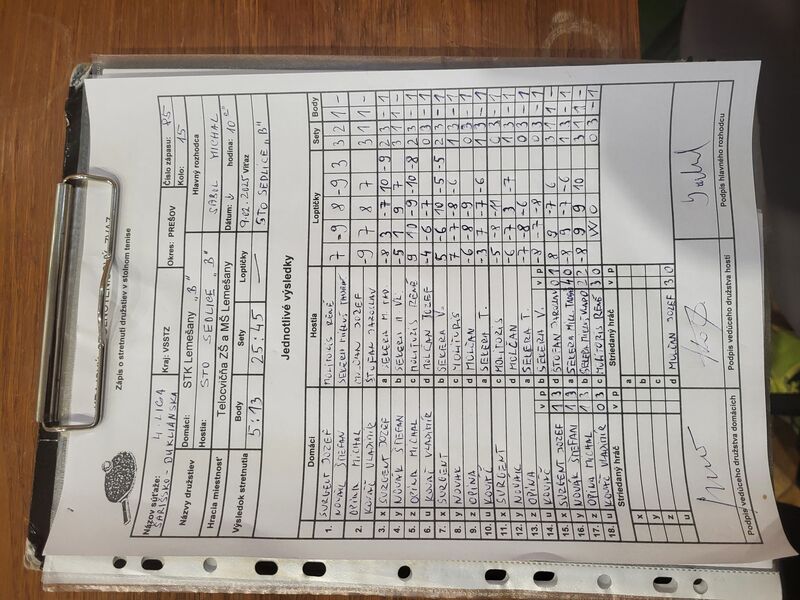 Zápis o stretnutí družstiev v stolnom tenise
Názov súťaže: 4. LIGA
ŠARIŠSKO - DUKLIANSKA
Kraj: VSSTZ
Okres: PREŠOV
Číslo zápasu: 75
Kolo: 15
Názvy družstiev
Domáci: STK Lemešany "B"
Hostia: STO SEDLICE "B"
Hlavný rozhodca
SABOL MICHAL
Hracia miestnosť
Telocvičňa ZŠ a MŠ Lemešany
Dátum:
hodina: 10
Výsledok stretnutia
Body Sety Loptičky
5:13 25:45 —
9.02.2025 Víťaz
STO SEDLICE "B"
Jednotlivé výsledky
Domáci Hostia Loptičky Sety Body
1. SURGENT JOZEF MOLITORIS RÉNÉ 7 -9 8 -9 3 3 2 1 -
NOVÁK ŠTEFAN SEKERA
2. OPINA MICHAL MOLČAN JOZEF 9 7 8 7 3 1 1 -
KOVÁČ VLADIMÍR ŠTOFAN JAROSLAV
3. x SURGENT JOZEF a SEKERA M. -8 3 -7 10 -9 2 3 - 1
4. y NOVÁK ŠTEFAN b SEKERA VL. -5 1 9 7 3 1 1 -
5. z OPINA MICHAL c MOLITORIS RÉNÉ 9 10 -9 -10 -8 2 3 - 1
6. u KOVÁČ VLADIMÍR d MOLČAN JOZEF -4 -6 -7 0 3 - 1
7. x SURGENT b SEKERA V. 5 -6 10 -5 -5 2 3 - 1
8. y NOVÁK c MOLITORIS 7 -7 -8 -6 1 3 - 1
9. z OPINA d MOLČAN -6 -8 -9 0 3 - 1
10. u KOVÁČ a SEKERA T. -3 7 -7 -6 1 3 - 1
11. x SURGENT c MOLITORIS -5 -8 -11 0 3 - 1
12. y NOVÁK d MOLČAN -6 -7 3 -7 1 3 - 1
13. z OPINA a SEKERA T. -7 -8 -6 0 3 - 1
14. u KOVÁČ b SEKERA V. -8 -7 -8 0 3 - 1
v p v p
15. x SURGENT JOZEF 1 3 d ŠTOFAN JAROSLAV 0 1 8 9 -7 6 3 1 1 -
16. y NOVÁK ŠTEFAN 1 3 a SEKERA 4 0 -8 9 -7 -6 1 3 - 1
17. z OPINA MICHAL 1 3 b SEKERA 2 2 -8 9 9 10 3 1 1 -
18. u KOVÁČ VLADIMÍR 0 3 c MOLITORIS RÉNÉ 3 0 WO 0 3 - 1
Striedaný hráč v p Striedaný hráč v p
x a
y b
z c
u d MOLČAN JOZEF 3 0
Podpis vedúceho družstva domácich
Podpis vedúceho družstva hostí
Podpis hlavného rozhodcu